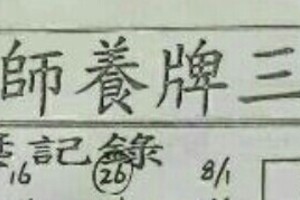 師養牌三
記錄
16 26 8/1